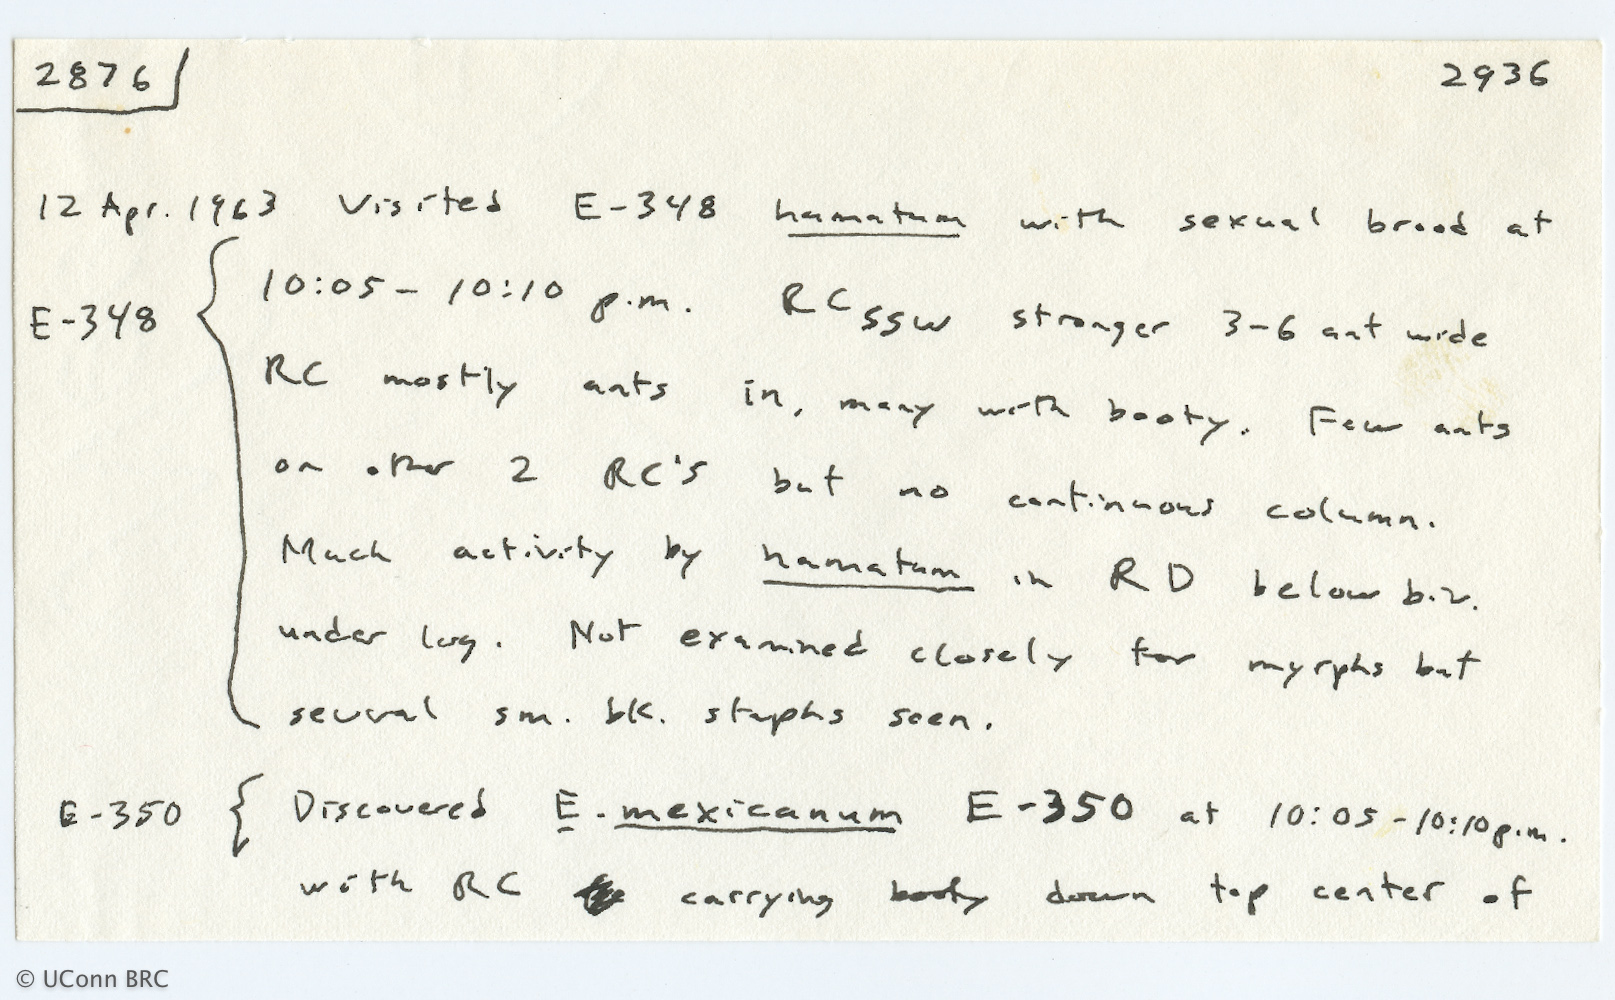 2876 2936
12 Apr. 1963 Visited E-348 hamatum with sexual brood at
E-348 10:05 - 10:10 p.m. RC SSW stronger 3-6 ant wide
RC mostly ants in, many with booty. Few ants
on other 2 RC's but no continuous column.
Much activity by hamatum in RD below biv.
under log. Not examined closely for myrphs but
several sm. bk. staphs seen.
E-350 Discovered E. mexicanum E-350 at 10:05 - 10:10 p.m.
with RC carrying booty down top center of
© UConn BRC